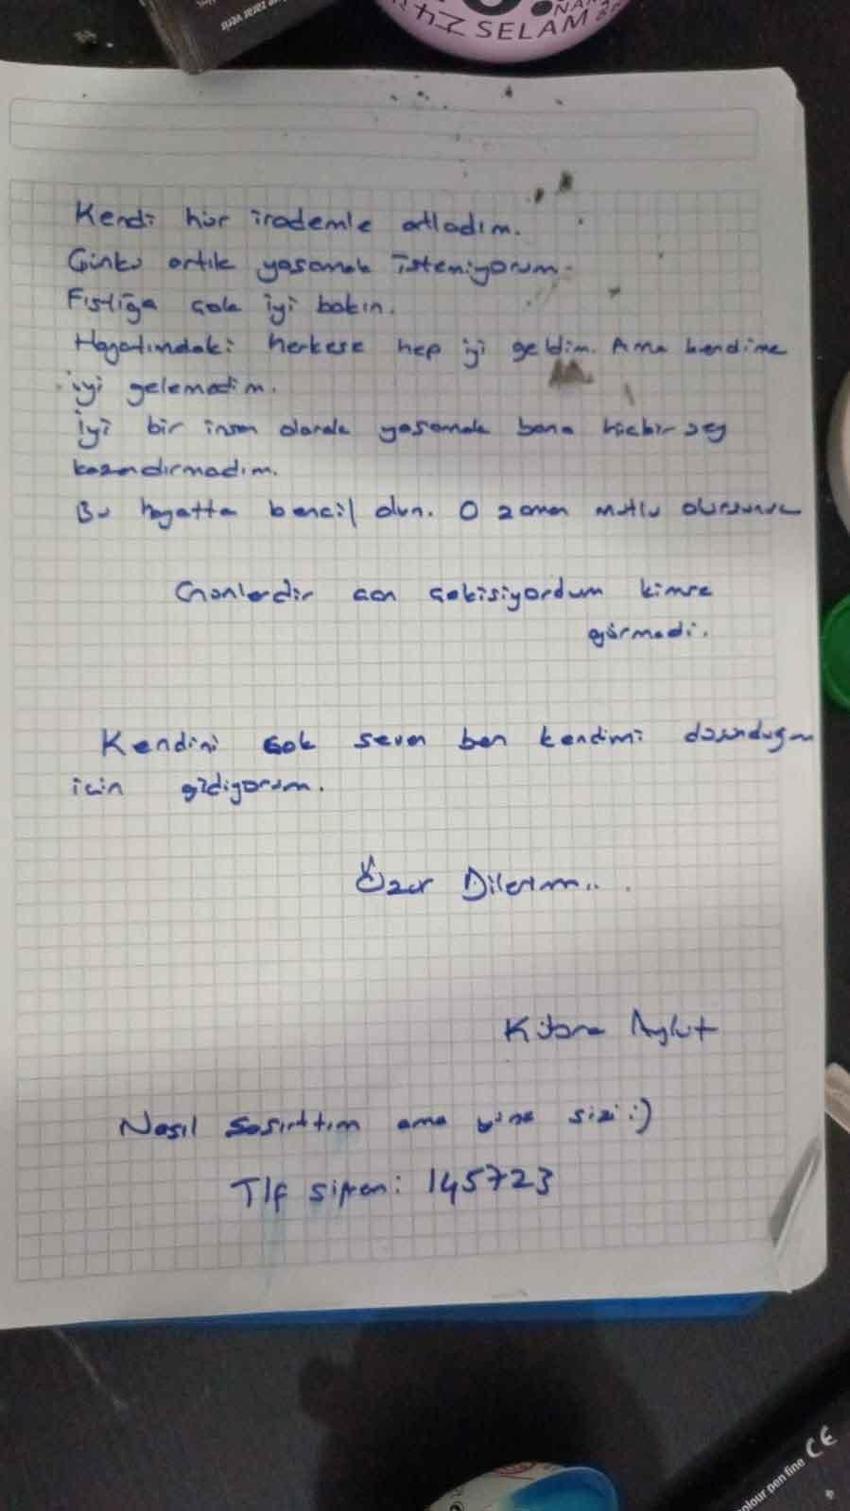 SELAM
Kendi hür irademle atladım.
Çünkü artık yaşamak istemiyorum.
Fıstığa çok iyi bakın.
Hayatımdaki herkese hep iyi geldim. Ama kendime
iyi gelemedim.
İyi bir insan olarak yaşamak bana hiçbir şey
kazandırmadım.
Bu hayatta bencil olun. O zaman mutlu olursunuz
Günlerdir can çekişiyordum kimse
görmedi.
Kendini çok seven ben kendimi düşündüğüm
için gidiyorum.
Özür Dilerim..
Kübra Aykut
Nasıl şaşırttım ama yine sizi :)
Tlf şifrem: 145723
colour pen fine CE